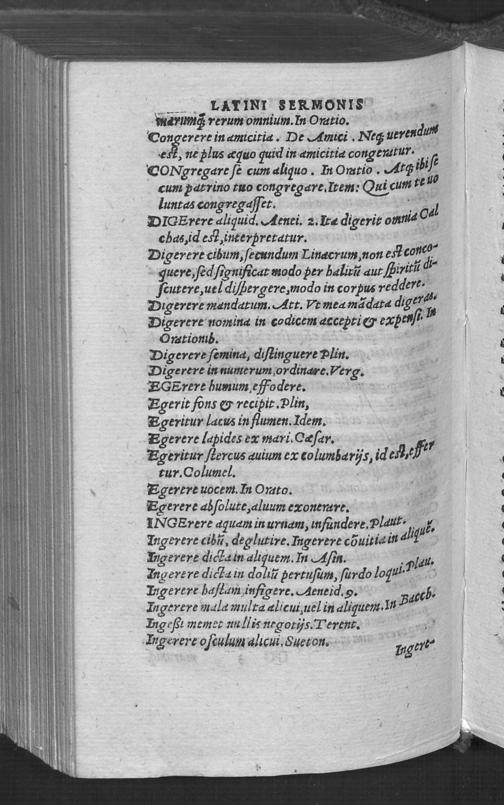 LATINI SERMONIS
marumq́; rerum omnium. In Oratio.
Congerere in amicitia. De Amici. Neq; uerendum
est, ne plus æquo quid in amicitia congeratur.
CONgregare se cum aliquo. In Oratio. Atq; ibi se
cum patrino tuo congregare. Item: Qui cum te uo
luntas congregasset.
DIGErere aliquid. Aenei. 2. Ita digerit omnia Cal
chas, id est, interpretatur.
Digerere cibum, secundum Linacrum, non est conco-
quere, sed significat modo per halitũ aut spiritũ di-
scutere, uel dispergere, modo in corpus reddere.
Digerere mandatum. Att. Vt mea mãdata digeras.
Digerere nomina in codicem accepti & expensi. In
Orationib.
Digerere semina, distinguere Plin.
Digerere in numerum, ordinare. Verg.
EGErere humum, effodere.
Egerit fons & recipit. Plin,
Egeritur lacus in flumen. Idem.
Egerere lapides ex mari. Cæsar.
Egeritur stercus auium ex columbarijs, id est, effer
tur. Columel.
Egerere uocem. In Orato.
Egerere absolute, aluum exonerare.
INGErere aquam in urnam, infundere. Plaut.
Ingerere cibũ, deglutire. Ingerere cõuitia in aliquẽ.
Ingerere dicta in aliquem. In Asin.
Ingerere dicta in doliũ pertusum, surdo loqui. Plau.
Ingerere hastam, infigere. Aeneid. 9.
Ingerere mala multa alicui, uel in aliquem. In Bacch.
Ingessi memet nullis negotijs. Terent.
Ingerere osculum alicui. Sueton.
Ingere-